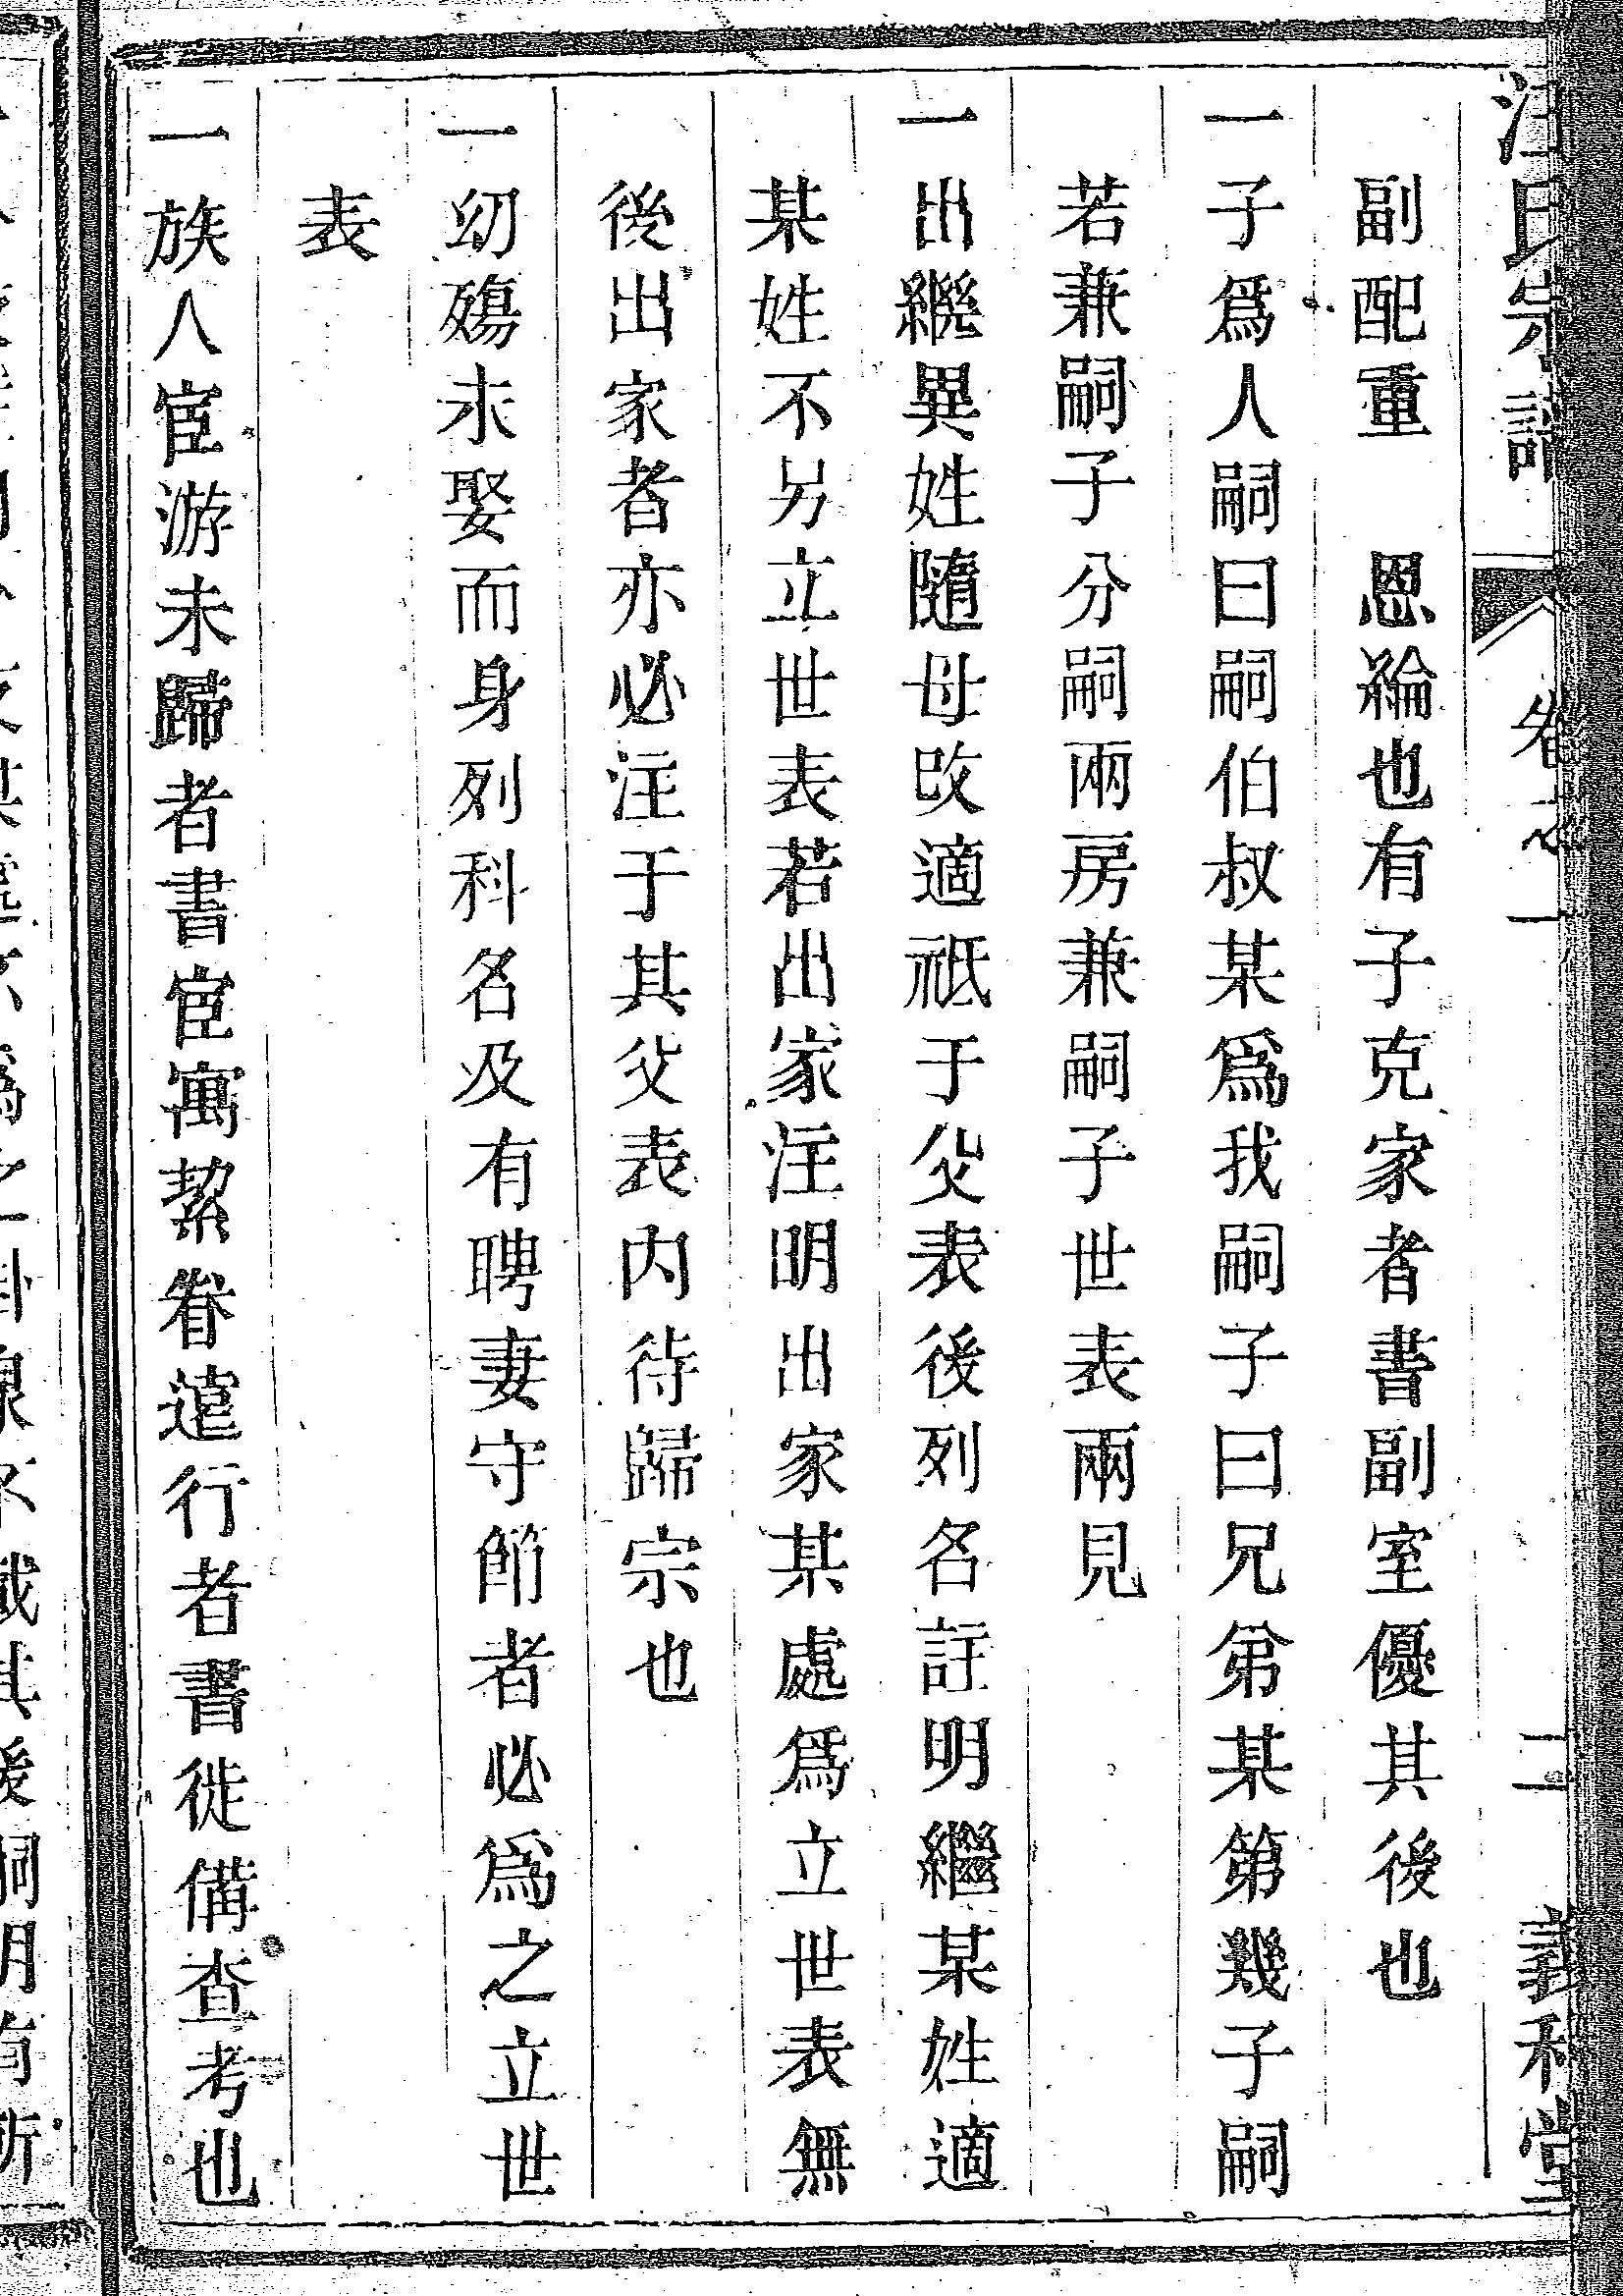 汪氏宗譜 卷之一 二 義和堂
副配重 恩綸也有子克家者書副室優其後也
一子爲人嗣曰嗣伯叔某爲我嗣子曰兄弟某第幾子嗣
若兼嗣子分嗣兩房兼嗣子世表兩見
一出繼異姓隨母改適祗于父表後列名註明繼某姓適
某姓不另立世表若出家注明出家某處爲立世表無
後出家者亦必注于其父表內待歸宗也
一幼殤未娶而身列科名及有聘妻守節者必爲之立世
表
一族人宦游未歸者書宦寓絜眷遠行者書徙備查考也